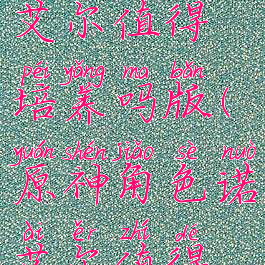 艾尔值得
péi yǎng ma bǎn
培养吗版(
yuán shén jiǎo sè nuò
原神角色诺
ài ěr zhí dé
艾尔值得